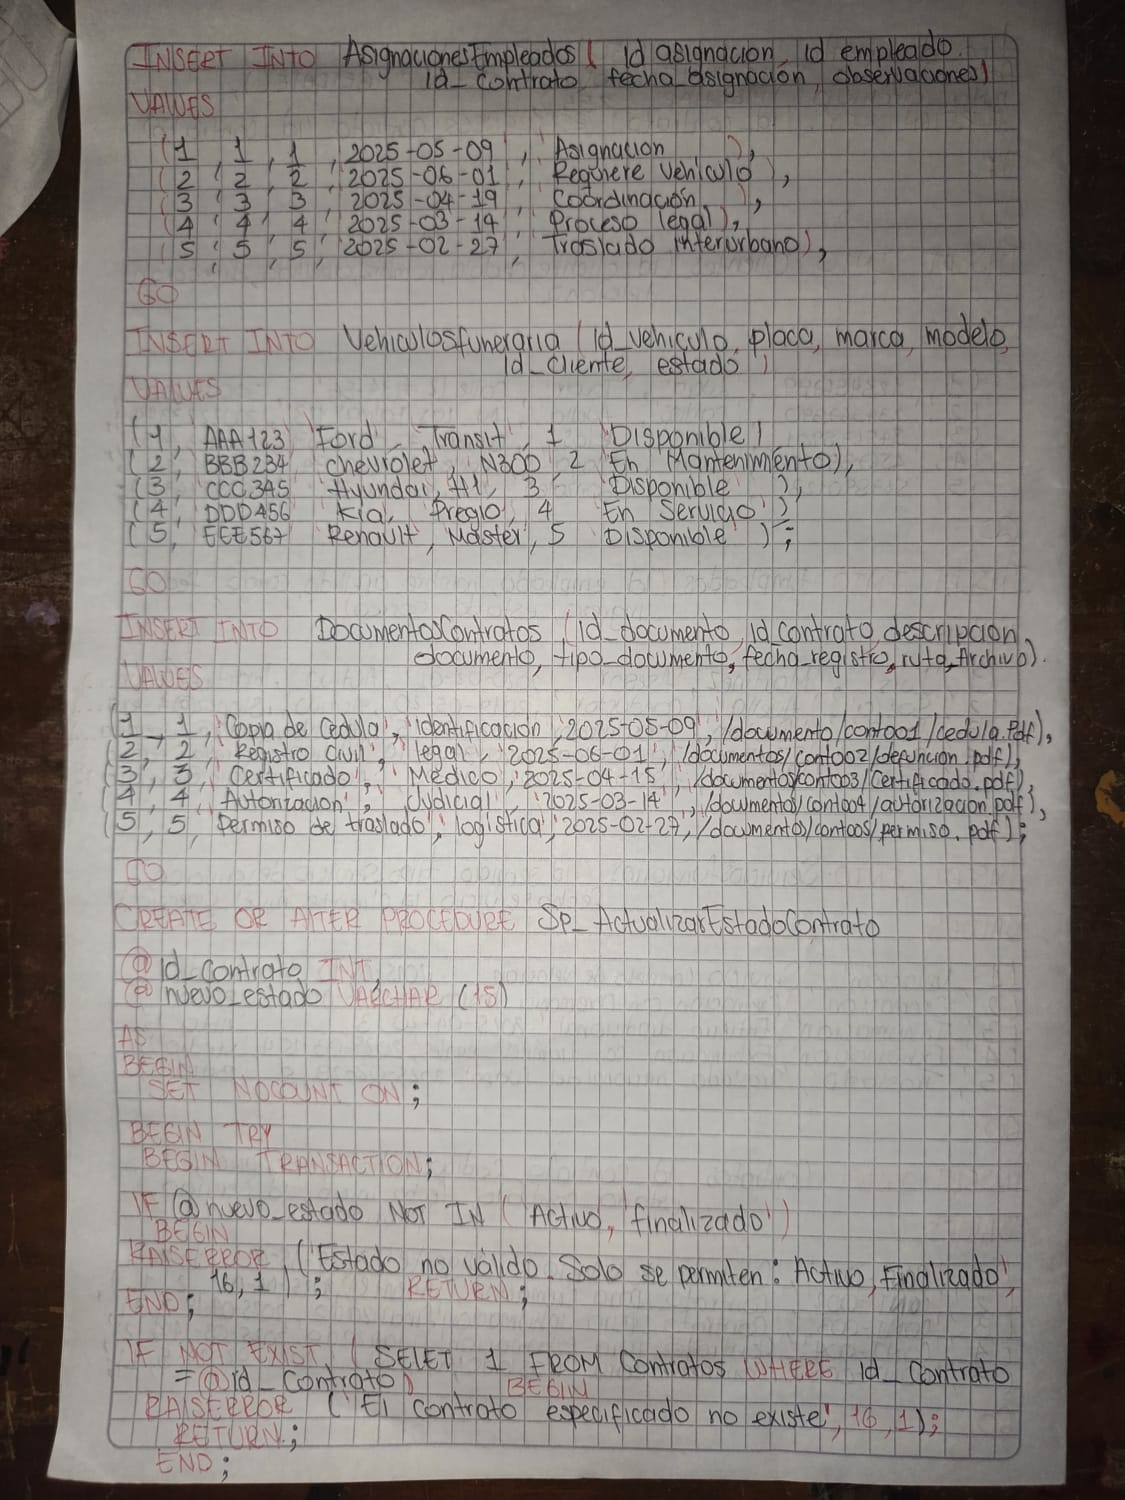 INSERT INTO AsignacionesEmpleados ( id asignacion, id empleado
id_contrato, fecha_asignación, observaciones)
VALUES
(1, 1, 1, '2025-05-09', 'Asignación'),
(2, 2, 2, '2025-06-01', 'Requiere Vehículo'),
(3, 3, 3, '2025-04-19', 'Coordinación'),
(4, 4, 4, '2025-03-14', 'Proceso legal'),
(5, 5, 5, '2025-02-27', 'Traslado interurbano'),
GO
INSERT INTO Vehiculosfuneraria (id_vehiculo, placa, marca, modelo,
id_cliente, estado)
VALUES
(1, 'AAA123' 'Ford', 'Transit', 1 'Disponible')
(2, BBB234 'Chevrolet', 'N300' 2 'En Mantenimiento),
(3, 'CCC345 'Hyundai', 'H1', 3, 'Disponible'),
(4, 'DDD456 'Kia', 'Pregio', 4 'En Servicio')
(5, 'EEE567 'Renault', 'Master', 5 'Disponible');
GO
INSERT INTO DocumentosContratos (id_documento, id_contrato, descripcion,
documento, tipo_documento, fecha_registro, ruta_Archivo).
VALUES
(1, 1, 'Copia de Cedula', 'Identificacion', '2025-05-09', '/documento/cont001/cedula.pdf),
(2, 2, 'Registro Civil', 'legal', '2025-06-01', '/documentos/cont002/defuncion.pdf),
(3, 3, 'Certificado', 'Médico', '2025-04-15', '/documentos/cont003/Certificado.pdf),
(4, 4, 'Autorizacion', 'Judicial', '2025-03-14', '/documentos/cont004/autorizacion.pdf),
(5, 5, 'Permiso de traslado', 'logística', '2025-02-27', '/documentos/cont005/permiso.pdf);
GO
CREATE OR ALTER PROCEDURE Sp_ActualizarEstadoContrato
@id_contrato INT,
@nuevo_estado VARCHAR (15)
AS
BEGIN
SET NOCOUNT ON;
BEGIN TRY
BEGIN TRANSACTION;
IF @nuevo_estado NOT IN ('Activo, 'finalizado')
BEGIN
RAISERROR ('Estado no válido. Solo se permiten: Activo, Finalizado',
16, 1); RETURN;
END;
IF NOT EXIST (SELET 1 FROM Contratos WHERE id_contrato
=@id_Contrato) BEGIN
RAISERROR ('El contrato especificado no existe', 16, 1);
RETURN;
END;